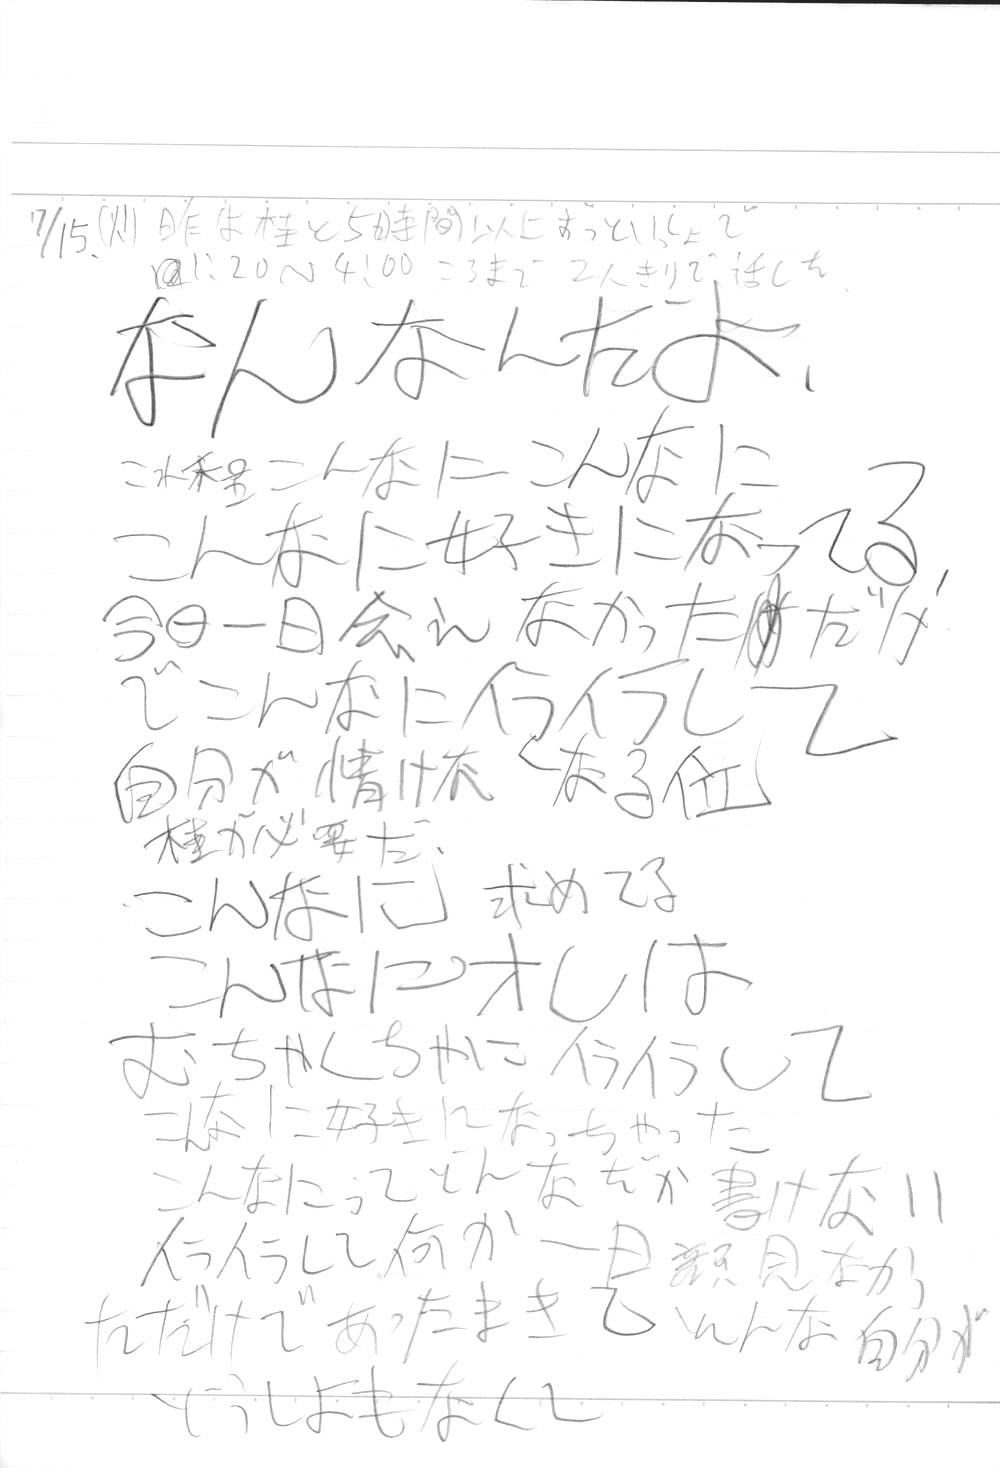 7/15.(火) 昨日は桂と5時間以上ずっといっしょで
1:20〜4:00 ころまで 2人きりで話した.
なんなんだよ、
これ程こんなに こんなに
こんなに好きになってる、
今日一日会えなかっただけ
でこんなにイライラして
自分が情けなくなる位
桂が必要だ、
こんなに 求めてる
こんなにオレは
むちゃくちゃにイライラして
こんなに好きになっちゃった
こんなにってどんなだか 書けない
イライラして何か 一日 顔見なかっ
ただけであったまきて そんな 自分が
どうしよもなくて